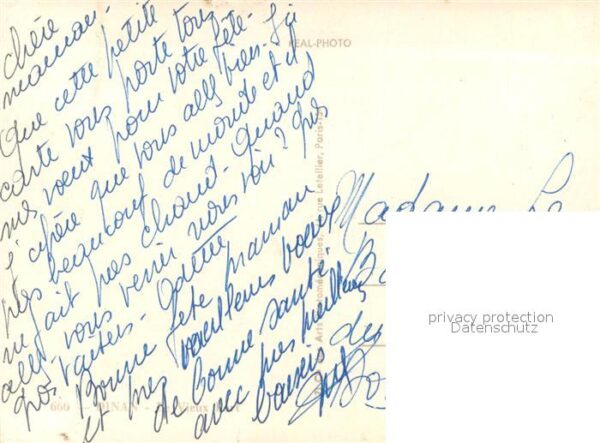 chère
maman.
Que cette petite
carte vous porte tous
mes voeux pour votre fête.
J'espère que vous allez bien. Ici
pas beaucoup de monde et il
ne fait pas chaud. Quand
allez-vous venir nous voir? Gros
baisers.
Bonne fête maman
et mes meilleurs voeux
de bonne santé.
avec mes meilleurs
baisers
REAL-PHOTO
Letellier, Paris
Madame Le
privacy protection
Datenschutz
666 - DINAN - Vieux